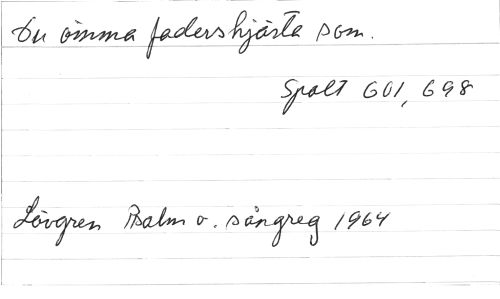 Du ömma fadershjärta som.
Spalt 601, 698
Lövgren Psalm o. sångreg 1964